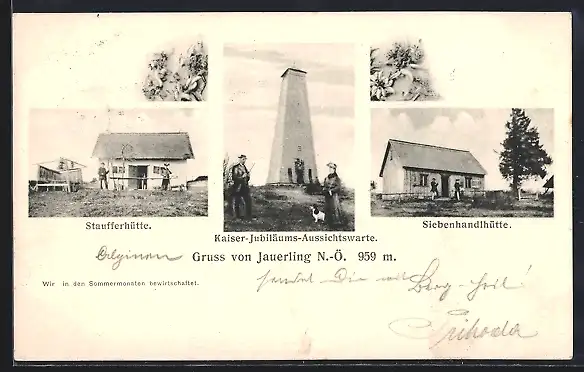 Staufferhütte.
Kaiser-Jubiläums-Aussichtswarte.
Siebenhandlhütte.
Gruss von Jauerling N.-Ö. 959 m.
Wir in den Sommermonaten bewirtschaftet.
sendet Dir mit Berg-Heil!